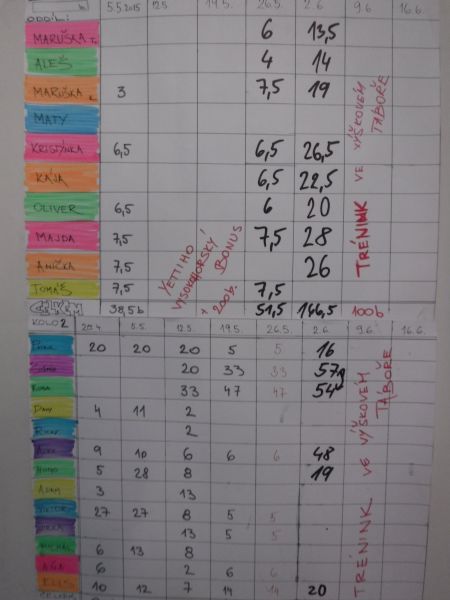 ODDÍL: 5.5.2015 12.5 19.5. 26.5. 2.6. 9.6 16.6.
MARUŠKA T. 6 13,5
ALEŠ 4 14
MARUŠKA 3 7,5 19
MATY
KRISTÝNKA 6,5 6,5 26,5
KÁJA 6,5 22,5
OLIVER 6,5 6 20
MAJDA 7,5 7,5 28
ANIČKA 7,5 26
TOMÁŠ 7,5 7,5
38,5b 51,5 146,5 100b
YETTIHO
VYSOKOHORSKÝ
BONUS
+ 200b.
TRÉNINK VE VÝŠKOVÉM
TÁBOŘE
KOLO 2 28.4 5.5. 12.5 19.5 26.5. 2.6. 9.6. 16.6.
20 20 20 5 5 16
20 33 33 57
33 47 47 54
DANY 4 11 2
2
9 10 6 6 6 48
HUGO 5 28 8 19
ADAM 3 13
VIKTOR 27 27 8 5 5
13 5 5
MICHAL 6 13 8
6 2 6 6
10 12 7 14 14 20
TRÉNINK VE VÝŠKOVÉM
TÁBOŘE